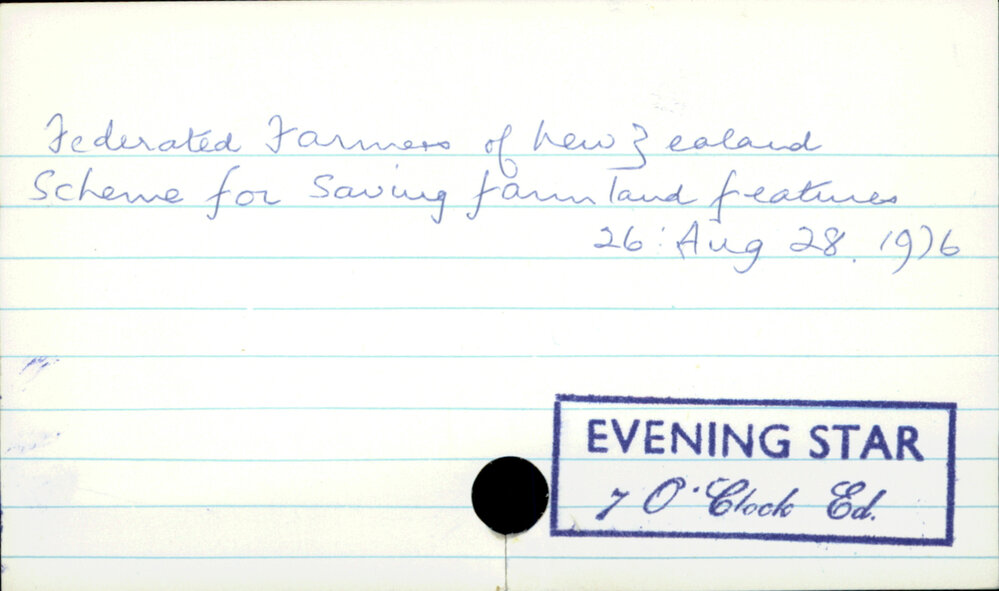 Federated Farmers of New Zealand
Scheme for Saving farm land features
26: Aug 28. 1976
EVENING STAR
7 O'Clock Ed.